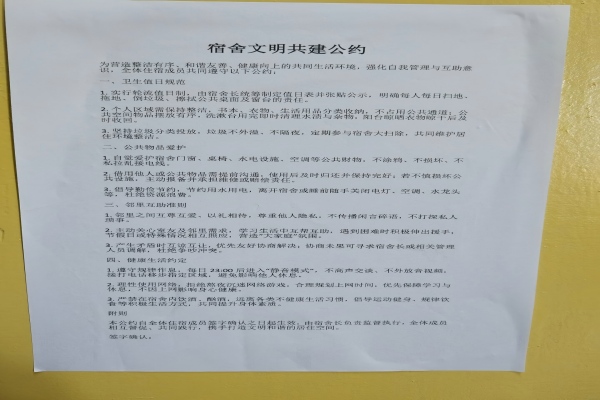 宿舍文明共建公约
为营造整洁有序、和谐友善、健康向上的共同生活环境，强化自我管理与互助意
识，全体住宿成员共同遵守以下公约：
一、卫生值日规范
1. 实行轮流值日制，由宿舍长统筹制定值日表并张贴公示，明确每人每日扫地、
拖地、倒垃圾、擦拭公共桌面及窗台的责任。
2. 个人区域需保持整洁，书本、衣物、生活用品分类收纳，不占用公共通道；公
共空间物品摆放有序，洗漱台用完即时清理水渍与杂物，阳台晾晒衣物晾干后及
时收回。
3. 坚持垃圾分类投放，垃圾不外溢、不隔夜，定期参与宿舍大扫除，共同维护居
住环境整洁。
二、公共物品爱护
1. 自觉爱护宿舍门窗、桌椅、水电设施、空调等公共财物，不涂鸦、不损坏、不
私拉乱接电线。
2. 借用他人或公共物品需提前沟通，使用后及时归还并保持完好；若不慎损坏公
共设施，主动报备并承担维修或赔偿责任。
3. 倡导勤俭节约，节约用水用电，离开宿舍或睡前随手关闭电灯、空调、水龙头
等，杜绝资源浪费。
三、邻里互助准则
1. 邻里之间互尊互爱，以礼相待，尊重他人隐私，不传播闲言碎语，不打探私人
琐事。
2. 主动关心室友及邻里需求，学习生活中互帮互助，遇到困难时积极伸出援手，
节假日或特殊情况相互照应，营造“大家庭”氛围。
3. 产生矛盾时互谅互让，优先友好协商解决，协商未果可寻求宿舍长或相关管理
人员调解，杜绝争吵冲突。
四、健康生活约定
1. 遵守规律作息，每日 23:00 后进入“静音模式”，不高声交谈、不外放音视频，
接打电话移步指定区域，避免影响他人休息。
2. 理性使用网络，拒绝熬夜沉迷网络游戏，合理规划上网时间，优先保障学习与
休息，不因上网影响身心健康。
3. 严禁在宿舍内饮酒、酗酒，远离各类不健康生活习惯，倡导运动健身、规律饮
食等积极生活方式，共同提升身体素质。
附则
本公约自全体住宿成员签字确认之日起生效，由宿舍长负责监督执行；全体成员
相互督促、共同践行，携手打造文明和谐的居住空间。
签字确认：